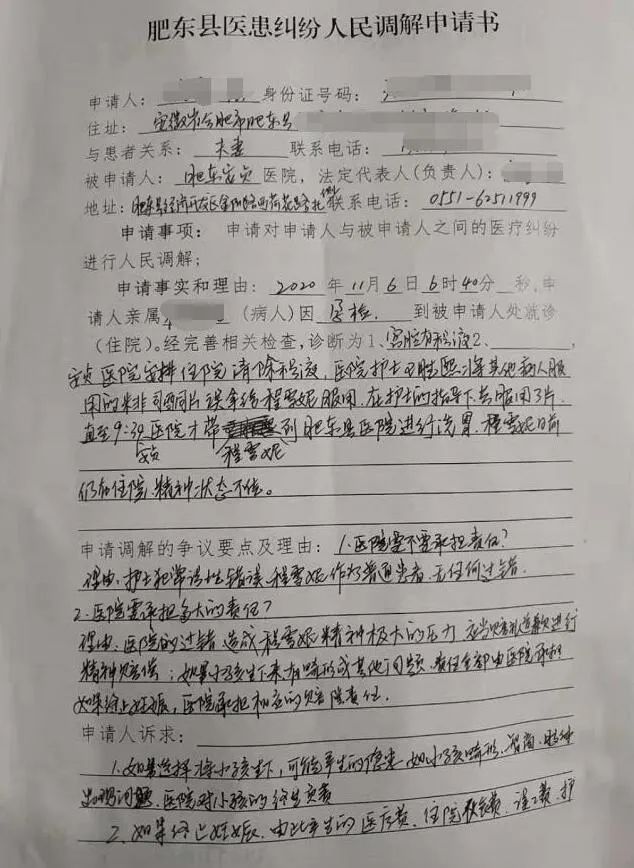 肥东县医患纠纷人民调解申请书
申请人： 身份证号码：
住址： 安徽省合肥市肥东县
与患者关系： 夫妻 联系电话：
被申请人： 肥东安贞 医院，法定代表人(负责人)：
地址：肥东县经济开发区 联系电话： 0551-62511999
申请事项： 申请对申请人与被申请人之间的医疗纠纷
进行人民调解；
申请事实和理由： 2020 年 11 月 6 日 6 时 40 分 秒，申
请人亲属 （病人）因 孕检 到被申请人处就诊
（住院）。经完善相关检查，诊断为 1、宫腔有积液 2、
安贞医院安排住院清除积液，医院护士 将其他病人服
用的米非司酮片误拿给程雪妮服用，在护士的指导下共服用3片
直至9:30医院才带 到肥东县医院进行洗胃，程雪妮目前
安贞 程雪妮
仍在住院，精神状态不佳。
申请调解的争议要点及理由： 1.医院需不需承担责任？
理由：护士犯常识性错误，程雪妮作为普通患者，无任何过错
2.医院需承担多大的责任？
理由：医院的过错造成程雪妮精神极大的压力，应当 进行
精神赔偿；如果小孩生下来有畸形或其他问题，责任全部由医院承担
如果终止妊娠，医院承担相应的赔偿责任.
申请人诉求：
1.如果选择把小孩生下，可能产生的隐患，如小孩畸形、智商、精神
出现问题，医院对小孩的终生负责
2、如果终止妊娠，由此产生的医疗费、住院 费、误工费、护